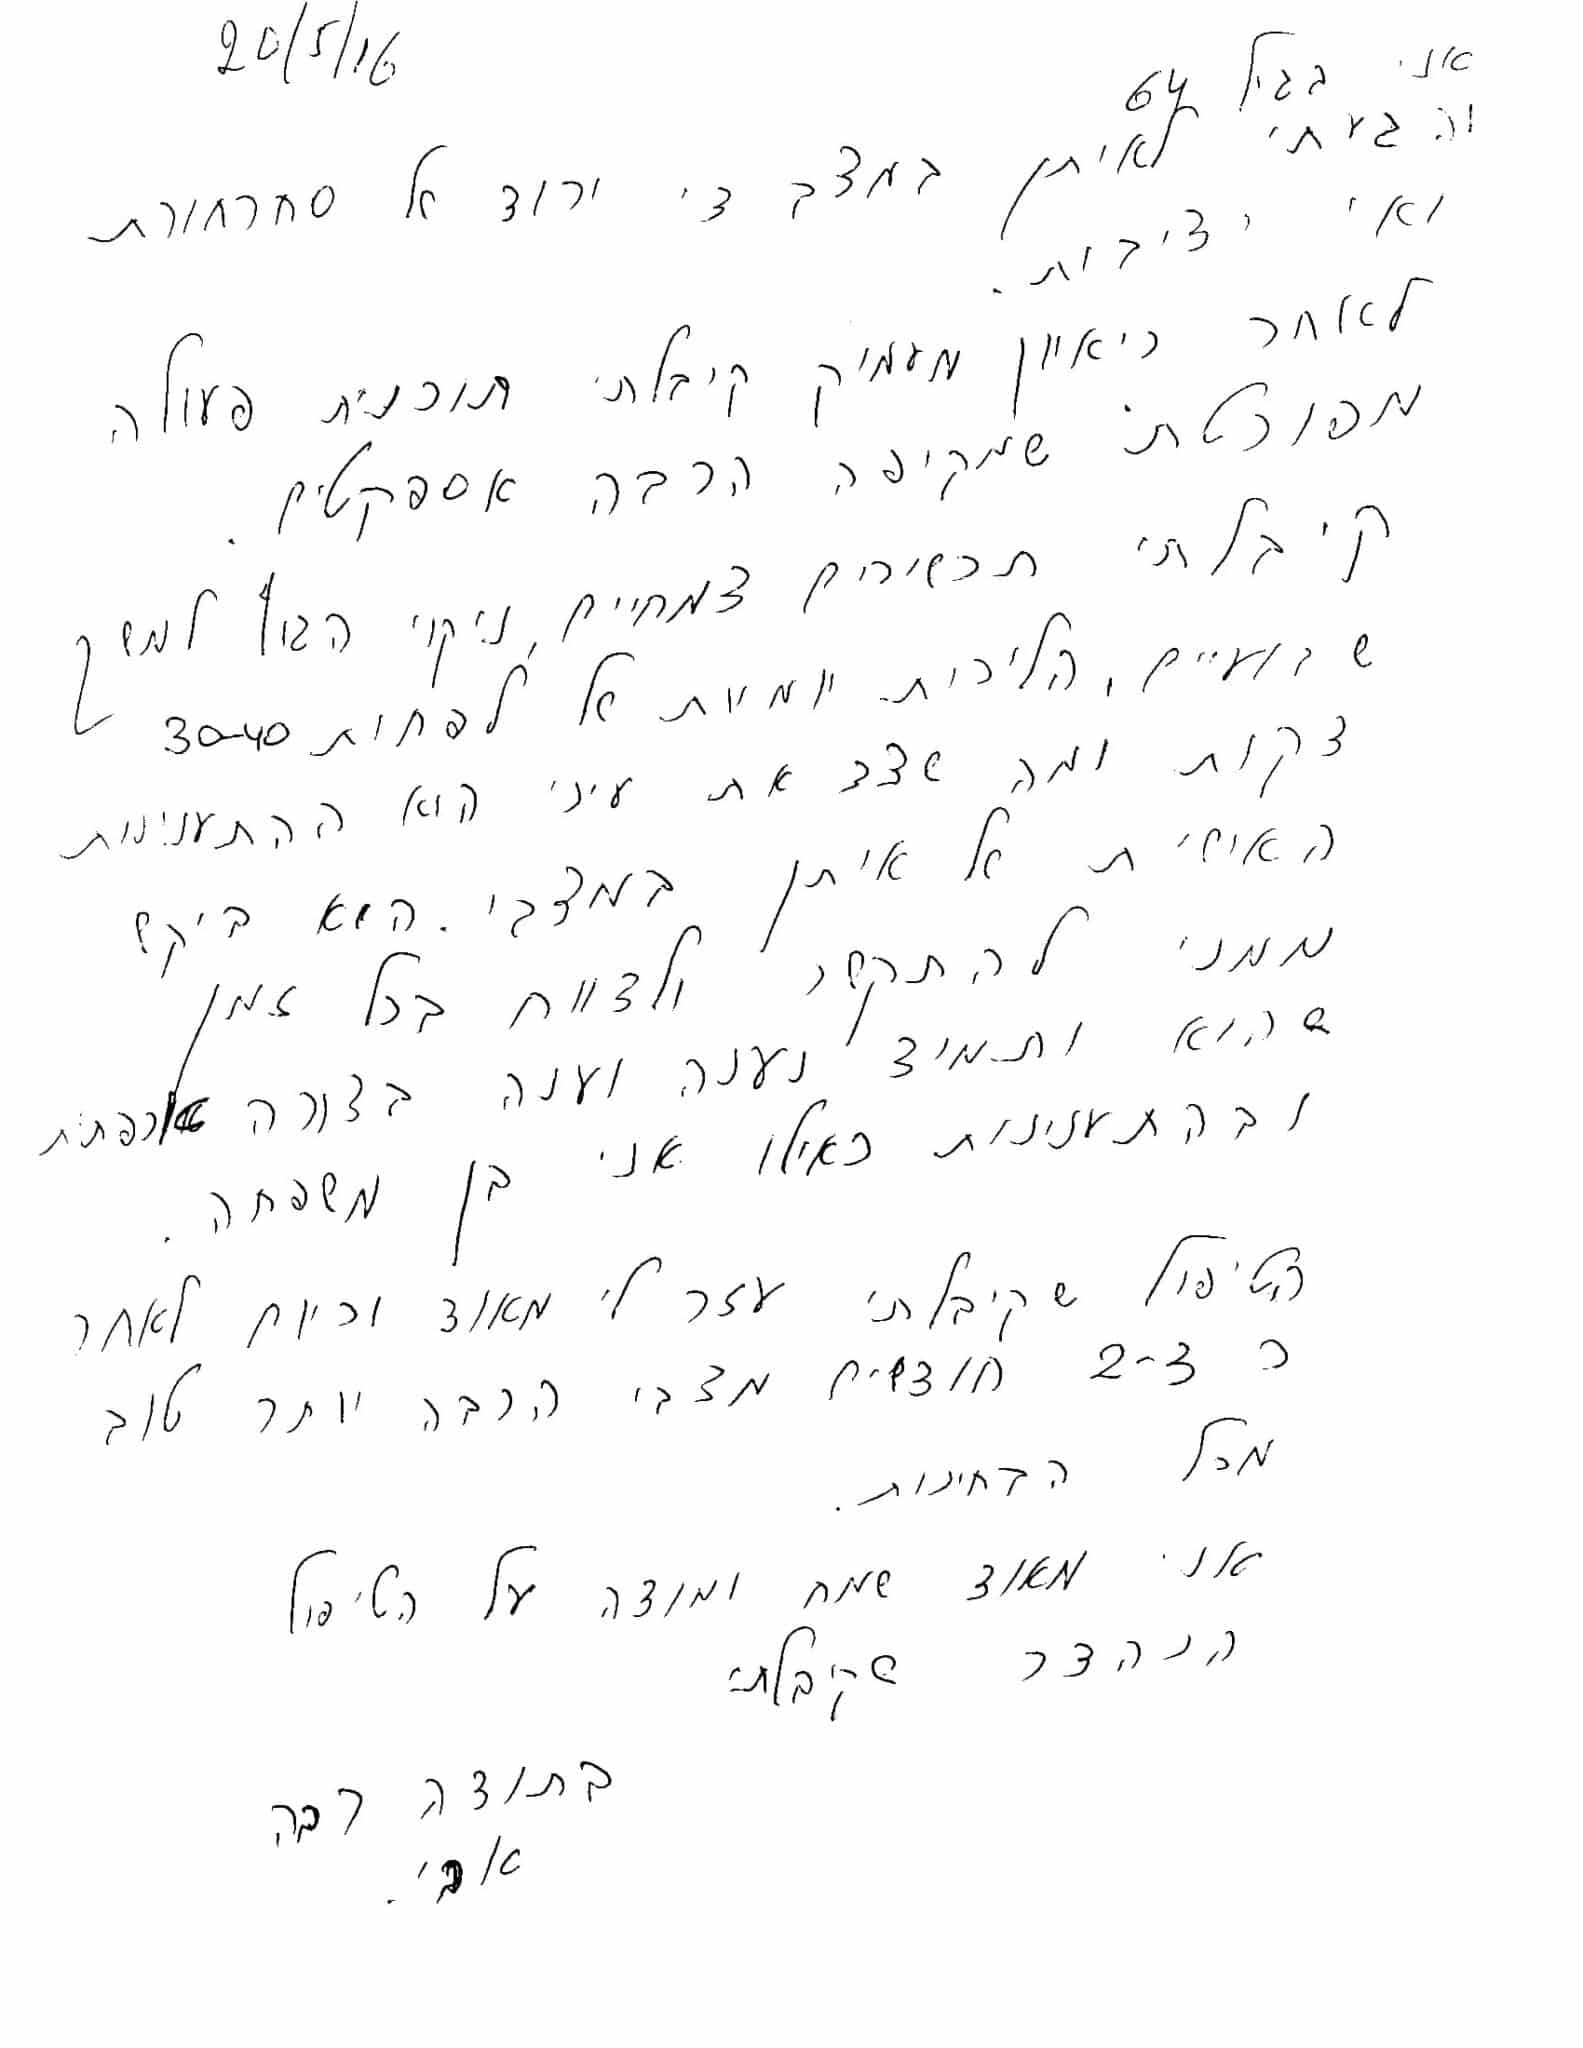 20/5/16
אני בגיל 64
והגעתי לאיתן במצב די ירוד של סחרחורת
ואי יציבות.
לאחר ריאיון מעמיק קיבלתי תוכנית פעולה
מפורטת שמקיפה הרבה אספקטים.
קיבלתי תכשירים צמחיים, ניקוי הגוף למשך
שבועיים, הליכות יומיות של לפחות 30-40
דקות ומה שצד את עיני הוא ההתענינות
האישית של איתן במצבי. הוא ביקש
ממני להתקשר ולדווח בכל זמן
שהוא ותמיד נענה וענה בצורה
ובהתענינות כאילו אני בן משפחה.
הטיפול שקיבלתי עזר לי מאוד וכיום לאחר
כ 2-3 חודשים מצבי הרבה יותר טוב
מכל הבחינות.
אני מאוד שמח ומודה על הטיפול
הנהדר שקיבלתי
בתודה רבה
אבי.